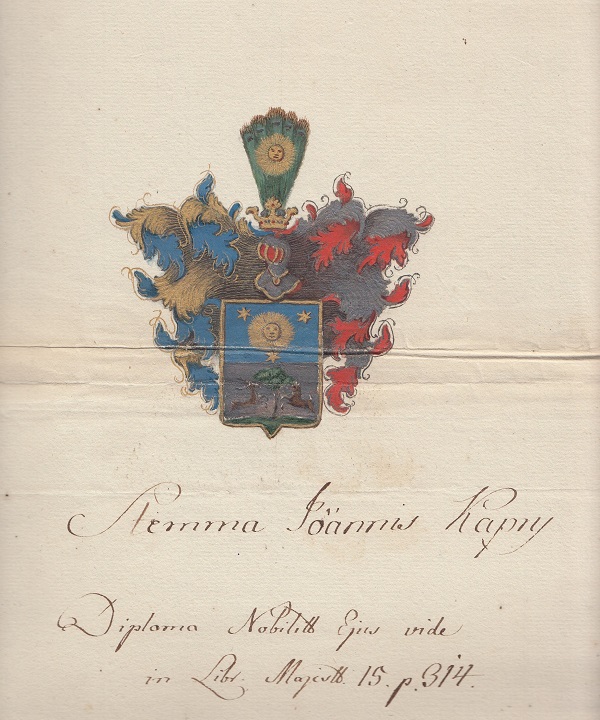 Stemma Jöannis Kapry
Diploma Nobilitts Ejus vide
in Libr. Majestt. 15. p. 314.